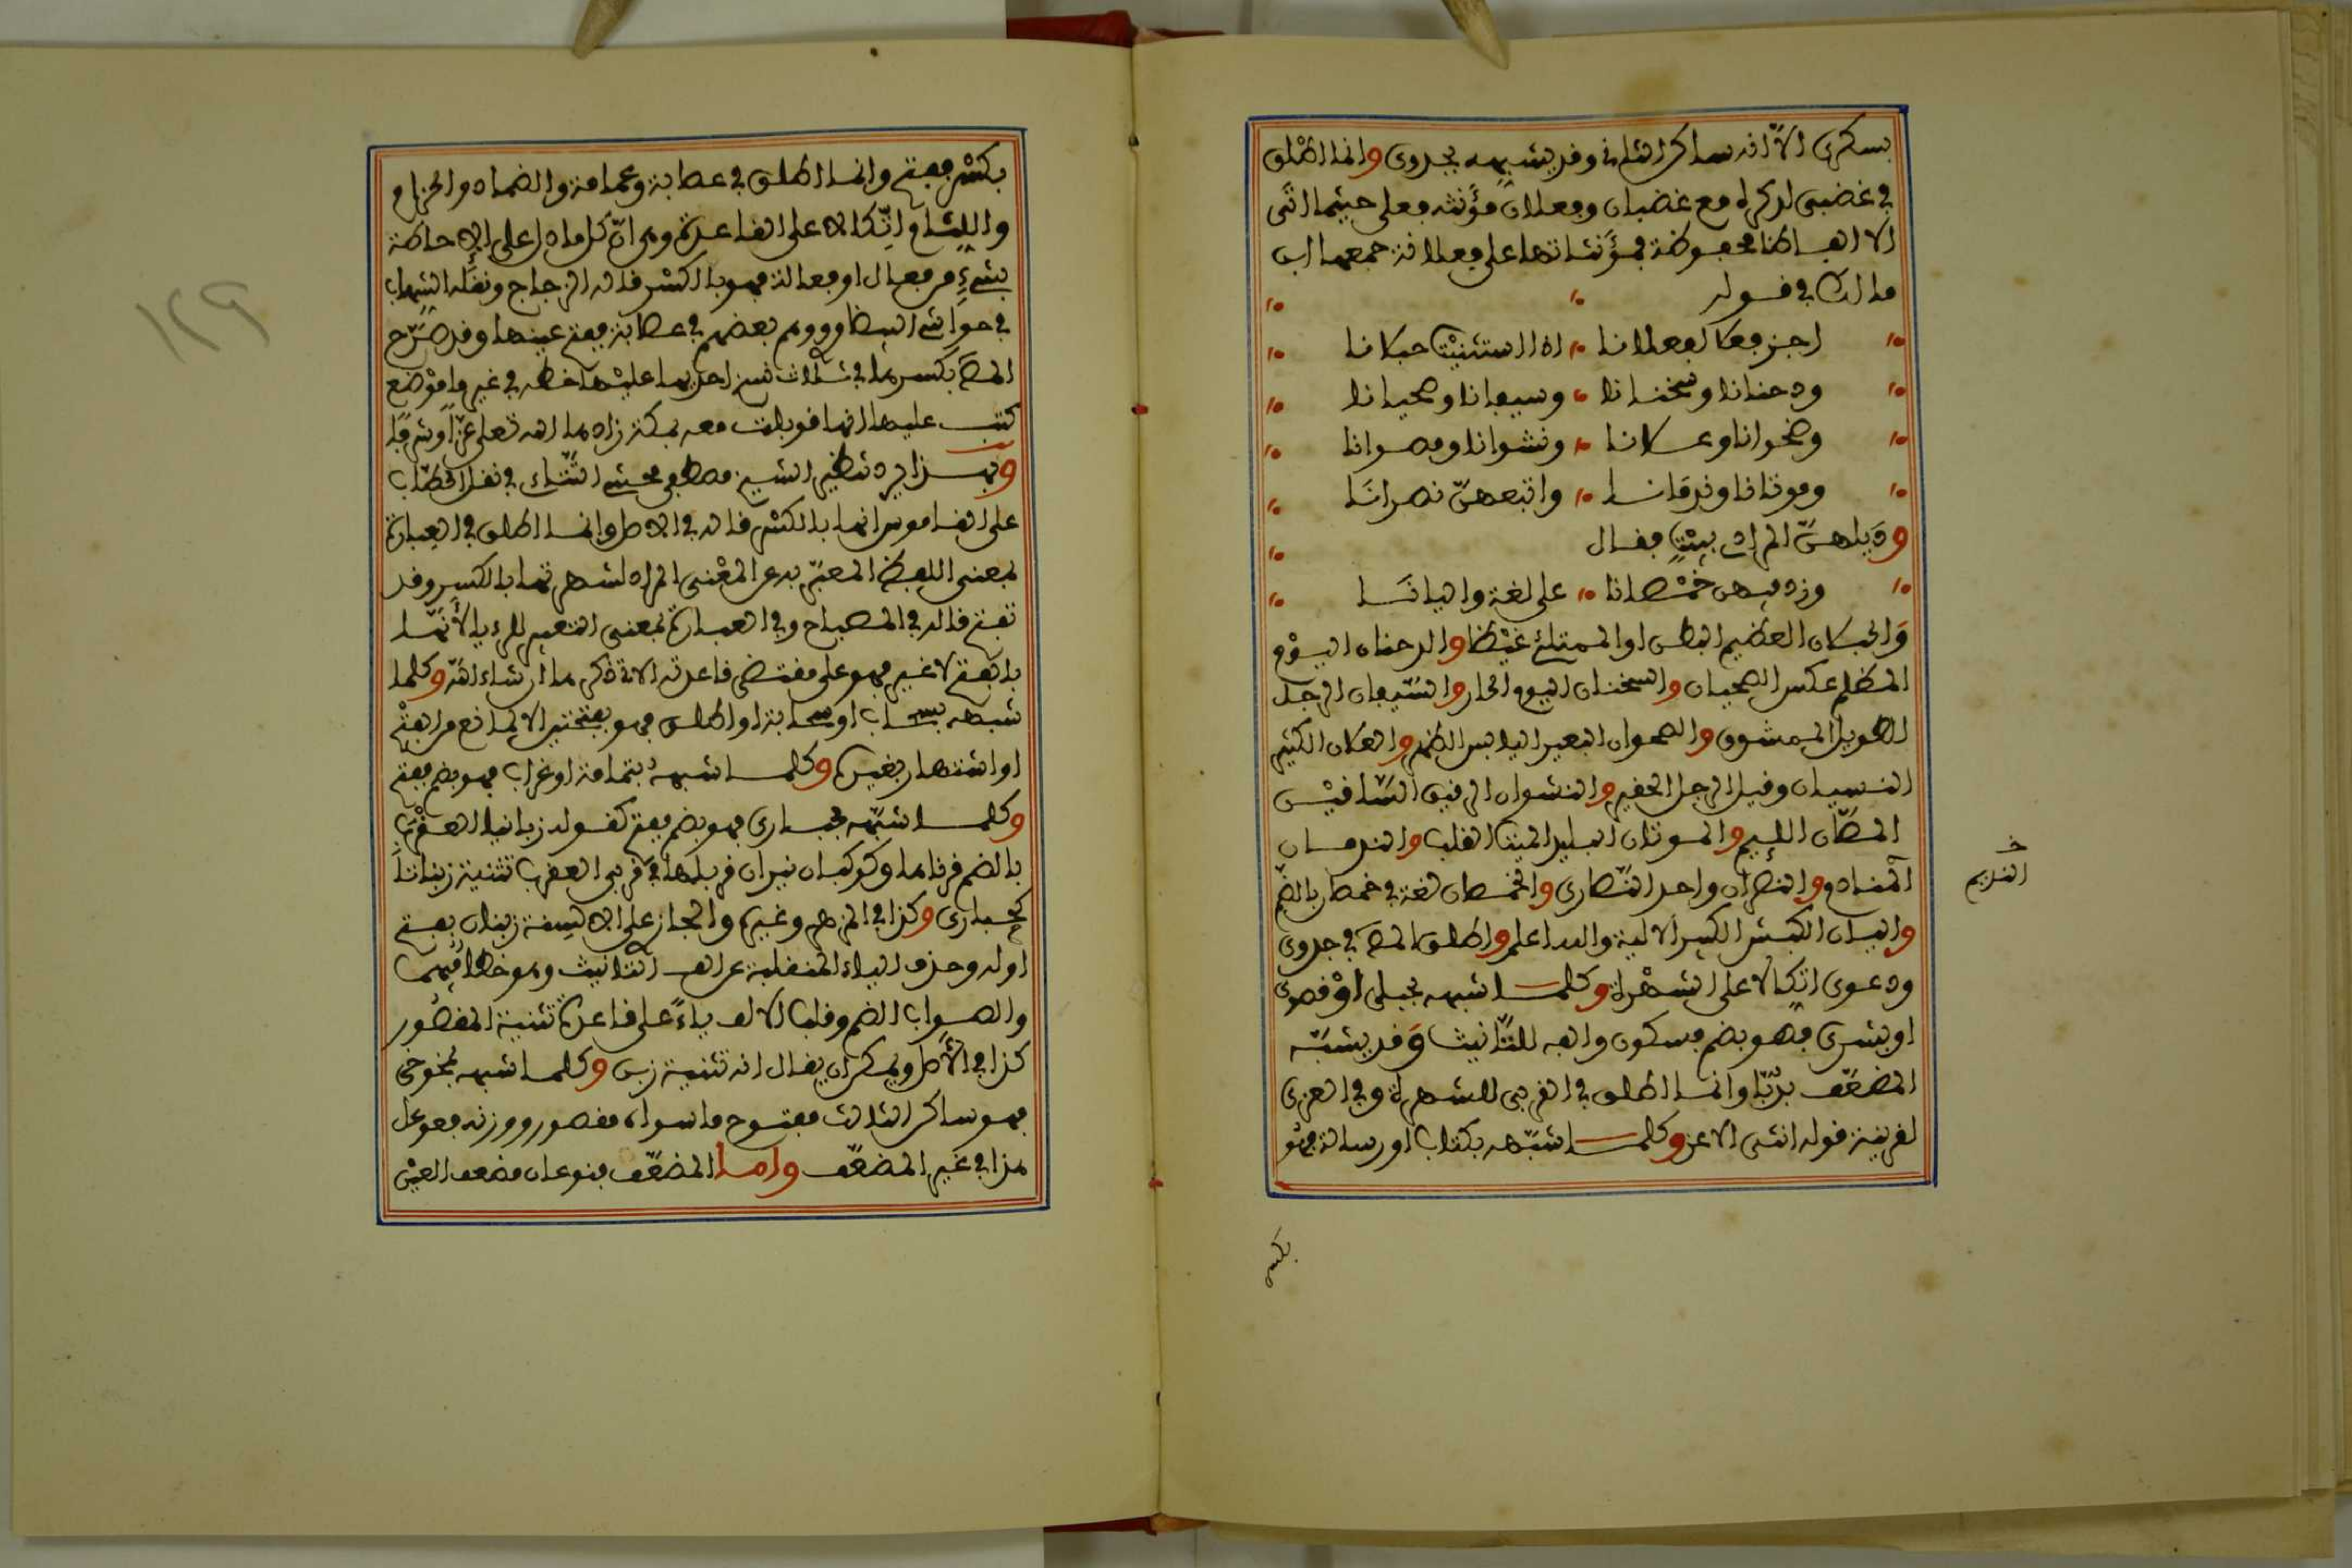 بسكرى الا انه ساكن الثاني وقد يشبهه بجدوى وانما اطلق
في غضبى لذكره مع غضبان وفعلان مؤنثه فعلى حيثما اتى
الا الفاظا محفوظة فمؤنثاتها على فعلانة جمعها ابن
مالك في قوله
اجز فعلا لفعلانا اذا استثنيت حبلانا
ودخنانا وسخنانا وسيفانا وصحيانا
وضوجانا وعلانا وقشوانا ومصانا
وموتانا وندمانا واتبعهن نصرانا
وذيلهن المرادي ببيت فقال
وزد فيهن خمصانا على لغة واليانا
والحبلان العظيم البطن او الممتلئ غيظا والدخنان اليوم
المظلم عكس الصحيان والسخنان اليوم الحار والسيفان الرجل
الطويل الممشوق والصوجان البعير اليابس الظهر والعلان الكثير
النسيان وقيل الرجل الحقير والقشوان الرقيق الساقين
المصان اللئيم والموتان البليد الميت القلب والندمان
المنادم والنصران واحد النصارى والخمصان لغة في خمصان بالضم
واليان الكبش الكبير الالية والله اعلم واطلق المص في جدوى
ودعوى اتكالا على الشهرة وكلما شبهه بحبلى او قصوى
او بشرى فهو بضم فسكون والفه للتانيث وقد يشبه
المضعف بربا وانما اطلق في القربى للشهرة وفي العزى
لقرينة قوله انثى الاعز وكلما شبهه بكتاب او رسالة فهو
النديم
بكسر
بكسر ففتح وانما اطلق في عصابة وعمامة والضماد والحزام
واللثام اتكالا على القاعدة وهي ان كل ما دل على الاحاطة
بشيء من فعال او فعالة فهو بالكسر قاله الزجاج ونقله الشهاب
في حواشي البيضاوي ووهم بعضهم في عصابة بفتح عينها وقد صرح
المص بكسرها في ثلاث نسخ احديها عليها خطه في غير ما موضع
كتب عليها انها قوبلت معه بمكة زادها الله تعلى عزا وشرفا
وبهذا يرد تنظير الشيخ مصطفى محشي الشهاب في نقل الخطاب
على القاموس انها بالكسر قاله في الاصل وانما اطلق في العبارة
بمعنى اللفظ المعبر به عن المعنى المراد لشهرتها بالكسر وقد
تفتح قاله في المصباح وفي العبارة بمعنى التعبير للرءيا لانها
بالفتح لا غير فهو على مقتضى قاعدته الاتة ذكرها ان شاء الله وكلما
شبهه بسحاب او سحابة او اطلق فهو بفتحتين الا لمانع من الفتح
او اشتهار بغيره وكلما شبهه بثمامة او غراب فهو بضم ففتح
وكلما شبهه بحبارى فهو بضم ففتح كقوله زبانيا العقرب
بالضم قرناها وكوكبان نيران قربهما في قرني العقرب تثنية زبانا
كحبارى وكذا في المزهر وغيره والجار على الالسنة زبنان بفتح
اوله وحذف الياء المنقلبة عن الف التانيث وهو خطا فيهما
والصواب الضم وقلب الالف ياء على قاعدة تثنية المقصور
كذا في الاصل ويمكن ان يقال انه تثنية زبن وكلما شبهه بخوخى
فهو ساكن الثالث مفتوح ما سواه مقصور ووزنه فعوعل
هذا في غير المضعف واما المضعف فنوعان مضعف العين